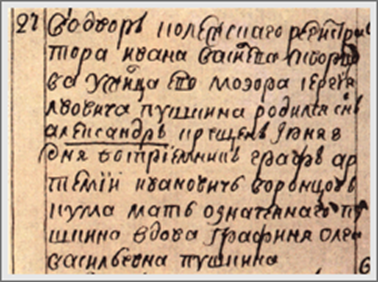 27 Водворѣ колежскаго регистра
тора ивана васильева скворцо
ва Ужильца Ево Моэора сергея
лвовича пушкина родился снъ
александръ крещенъ июня 8
дня воспріемникъ графъ ар
темій ивановичъ воронцовъ
кума мать означеннаго пу
шкина вдова графиня олга
васильевна пушкина 6